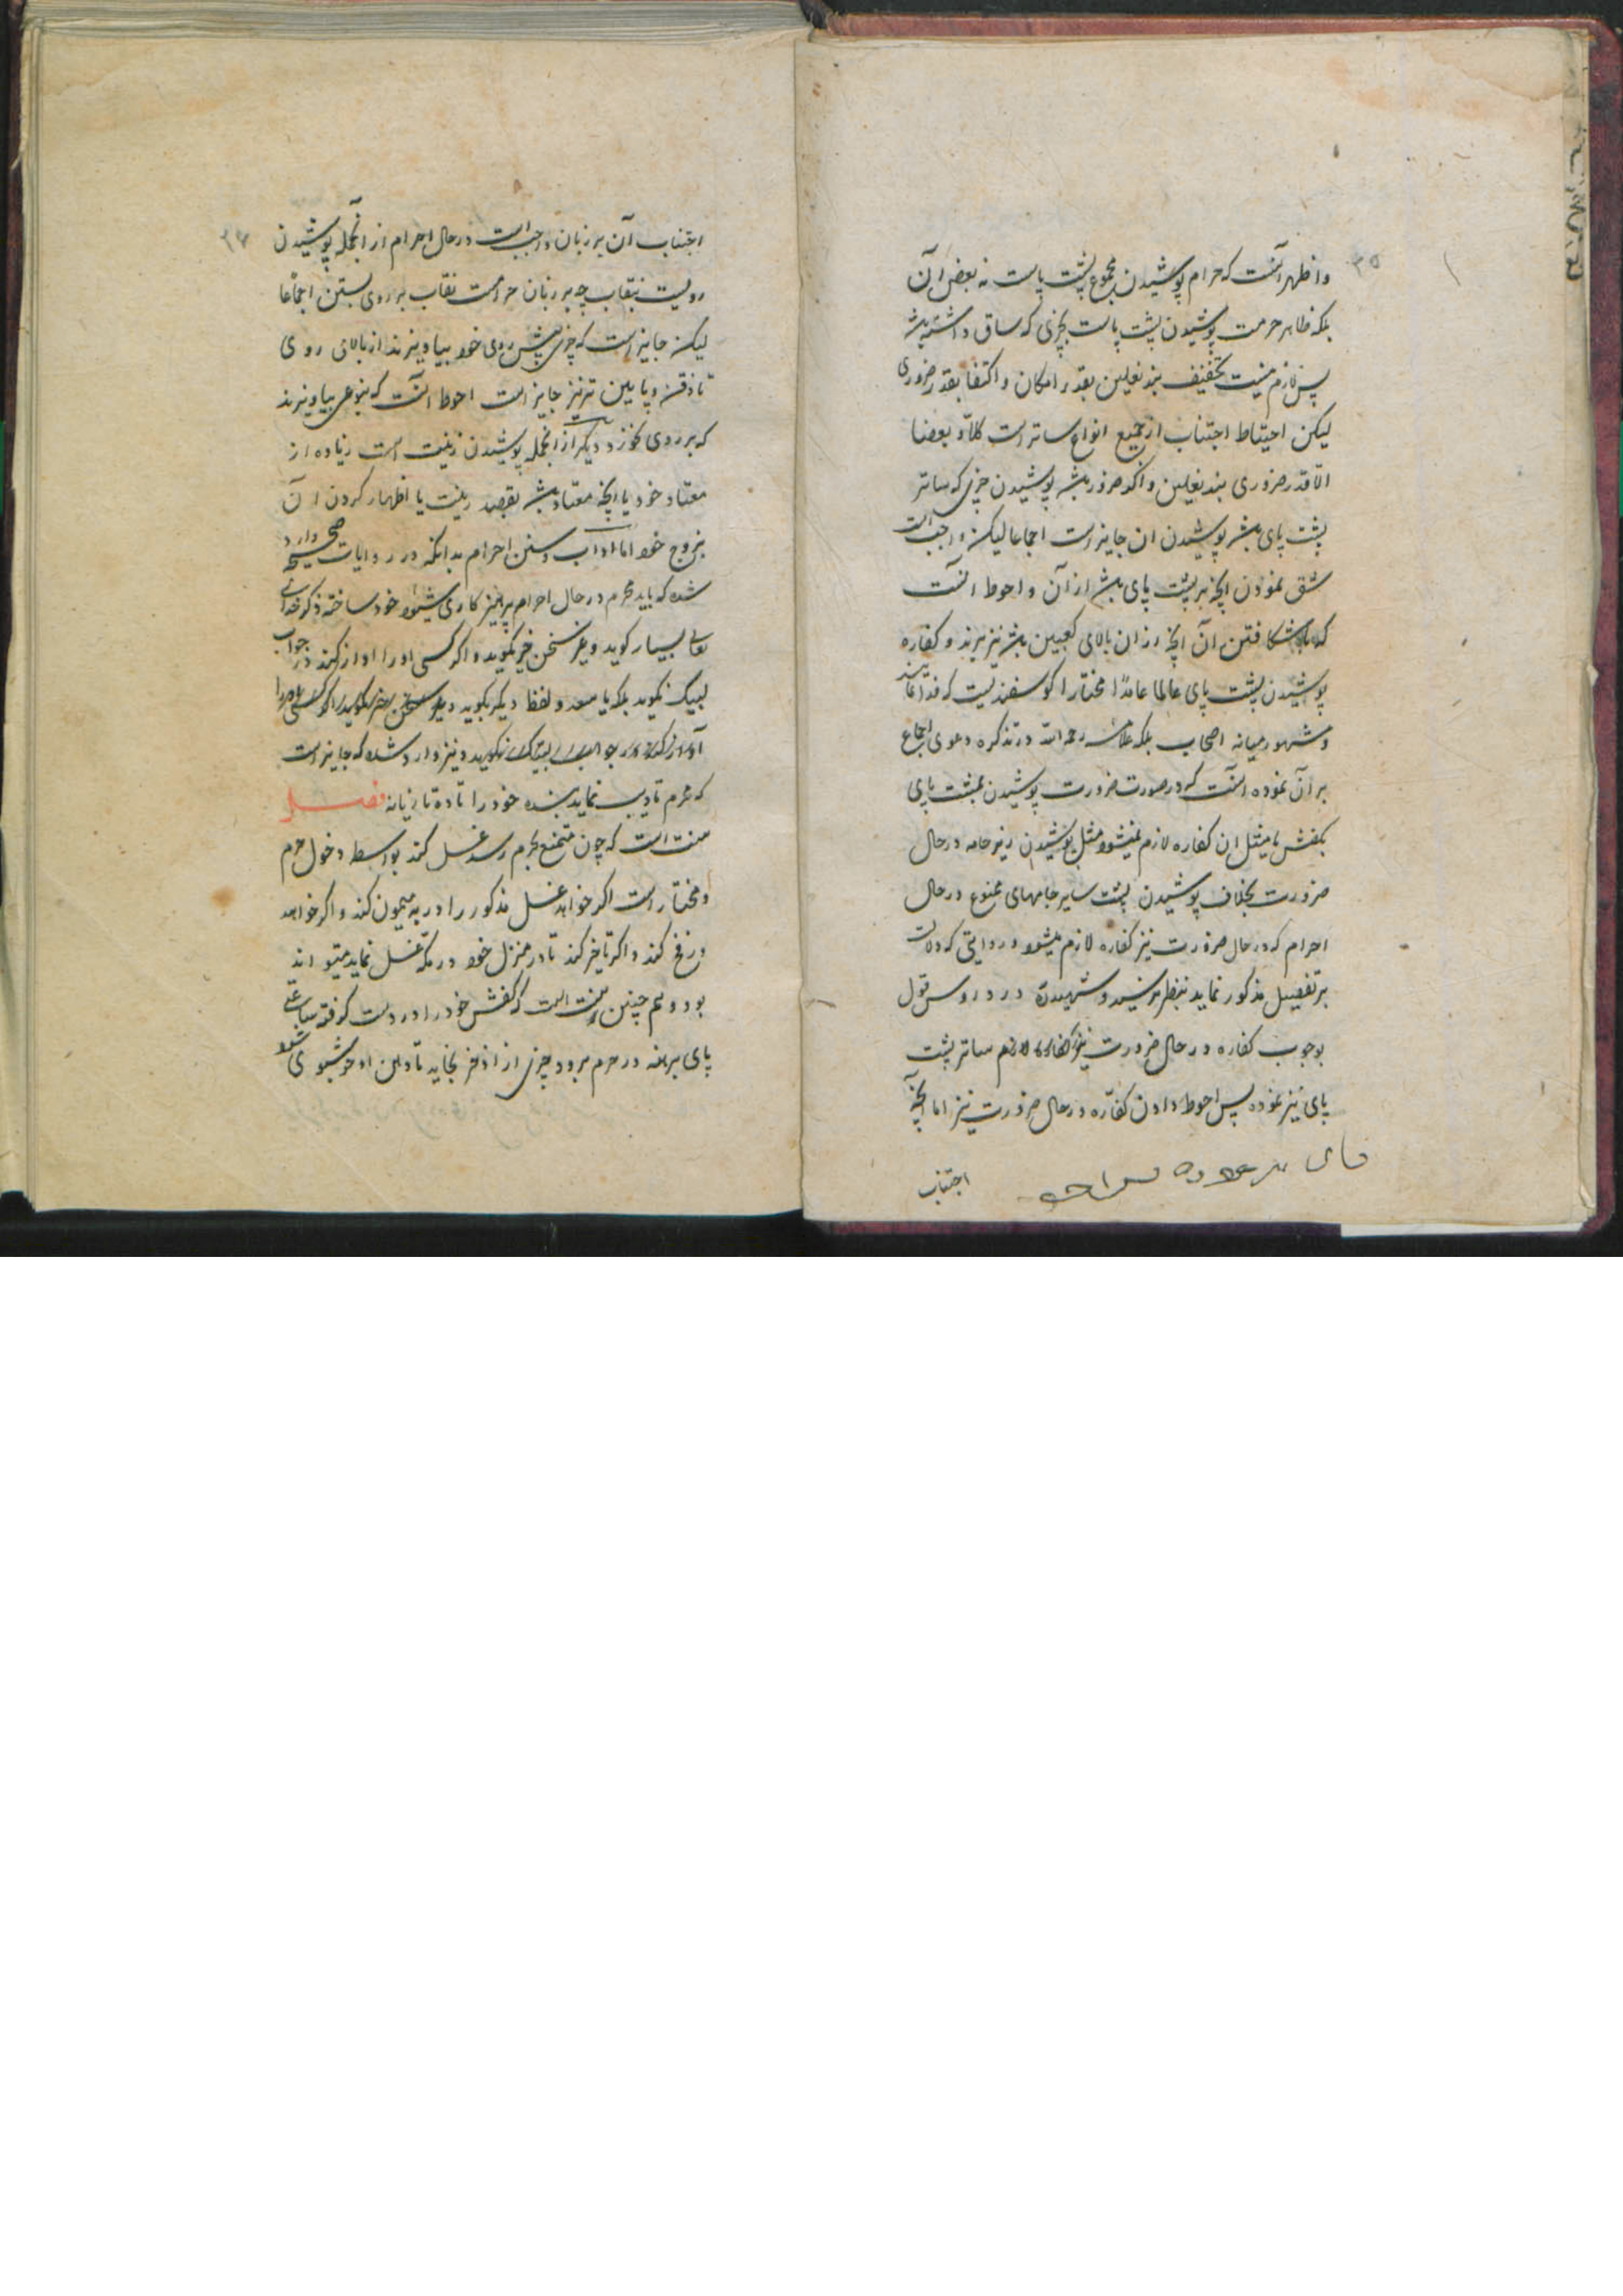 ۳۵
و اظهر آنست که حرام پوشیدن مجموع پشت پاست نه بعض آن
بلکه ظاهر حرمت پوشیدن پشت پاست بچیزی که ساق داشته باشد
پس لازم نیست تخفیف بند نعلین بقدر امکان و اکتفا بقدر ضروری
لیکن احتیاط اجتناب از جمیع انواع ساتر است کلا و بعضا
الا قدر ضروری بند نعلین و اکر ضرور باشد پوشیدن چیزی که ساتر
پشت پای باشد پوشیدن ان جایز است اجماعا لیکن واجبست
شق نمودن آنچه بر پشت پای باشد از آن و احوط آنست
که شکافتن آن آنچه از ان بالای کعبین باشد نیز ببرند و کفاره
پوشیدن پشت پای عالما عامدا مختارا کوسفندیست
و مشهور میانه اصحاب بلکه علامه رحمه الله در تذکره دعوی اجماع
بر آن نموده آنست که در صورت ضرورت پوشیدن پشت پای
بکفش یا مثل ان کفاره لازم نمیشود مثل پوشیدن زیرجامه در حال
ضرورت بخلاف پوشیدن سایر جامهای ممنوع در حال
احرام که در حال ضرورت نیز کفاره لازم میشود و روایتی که دلالت
بر تفصیل مذکور نماید بنظر نرسید و شهید در دروس قول
بوجوب کفاره در حال ضرورت ساتر پشت
پای نیز نموده پس احوط دادن کفاره در حال ضرورت نیز اما آنچه
اجتناب
۳۶
اجتناب آن بر زنان واجب است در حال احرام از آنجمله پوشیدن
رویست بنقاب چه بر زنان حرامست نقاب بر روی بستن اجماعا
لیکن جایز است که چیزی پیش روی خود بیاویزند از بالای روی
تا ذقن و پایین تر نیز جایز است احوط آنست که بنوعی بیاویزند
که بر روی نخورد و دیکر از انجمله پوشیدن زینت است زیاده از
معتاد خود یا آنچه معتاد باشد بقصد زینت یا اظهار کردن آن
بزوج خود اما اداب و سنن احرام بدانکه در روایات صحیحه وارد
شده که باید محرم در حال احرام پرهیزکاری شیوه خود ساخته ذکر خدای
تعالی بسیار کوید و بغیر سخن خیر نکوید و اکر کسی او را اواز کند در جواب
لبیک نکوید بلکه یا سعد و لفظ دیکر بکوید
و نیز وارد شده که جایز است
که محرم تادیب نماید بنده خود را تا ده تازیانه فصل
سنت است که چون متمتع بحرم رسد غسل کند بواسطه دخول حرم
و مختار است اکر خواهد غسل مذکور را در بئر میمون کند و اکر خواهد
در فخ کند و اکر تاخیر کند تا در منزل خود در مکه غسل نماید میتواند
بود و هم چنین سنت است که کفش خود را در دست کرفته ساعتی
پای برهنه در حرم برود چیزی از اذخر بخاید تا دهن او خوشبوی شود